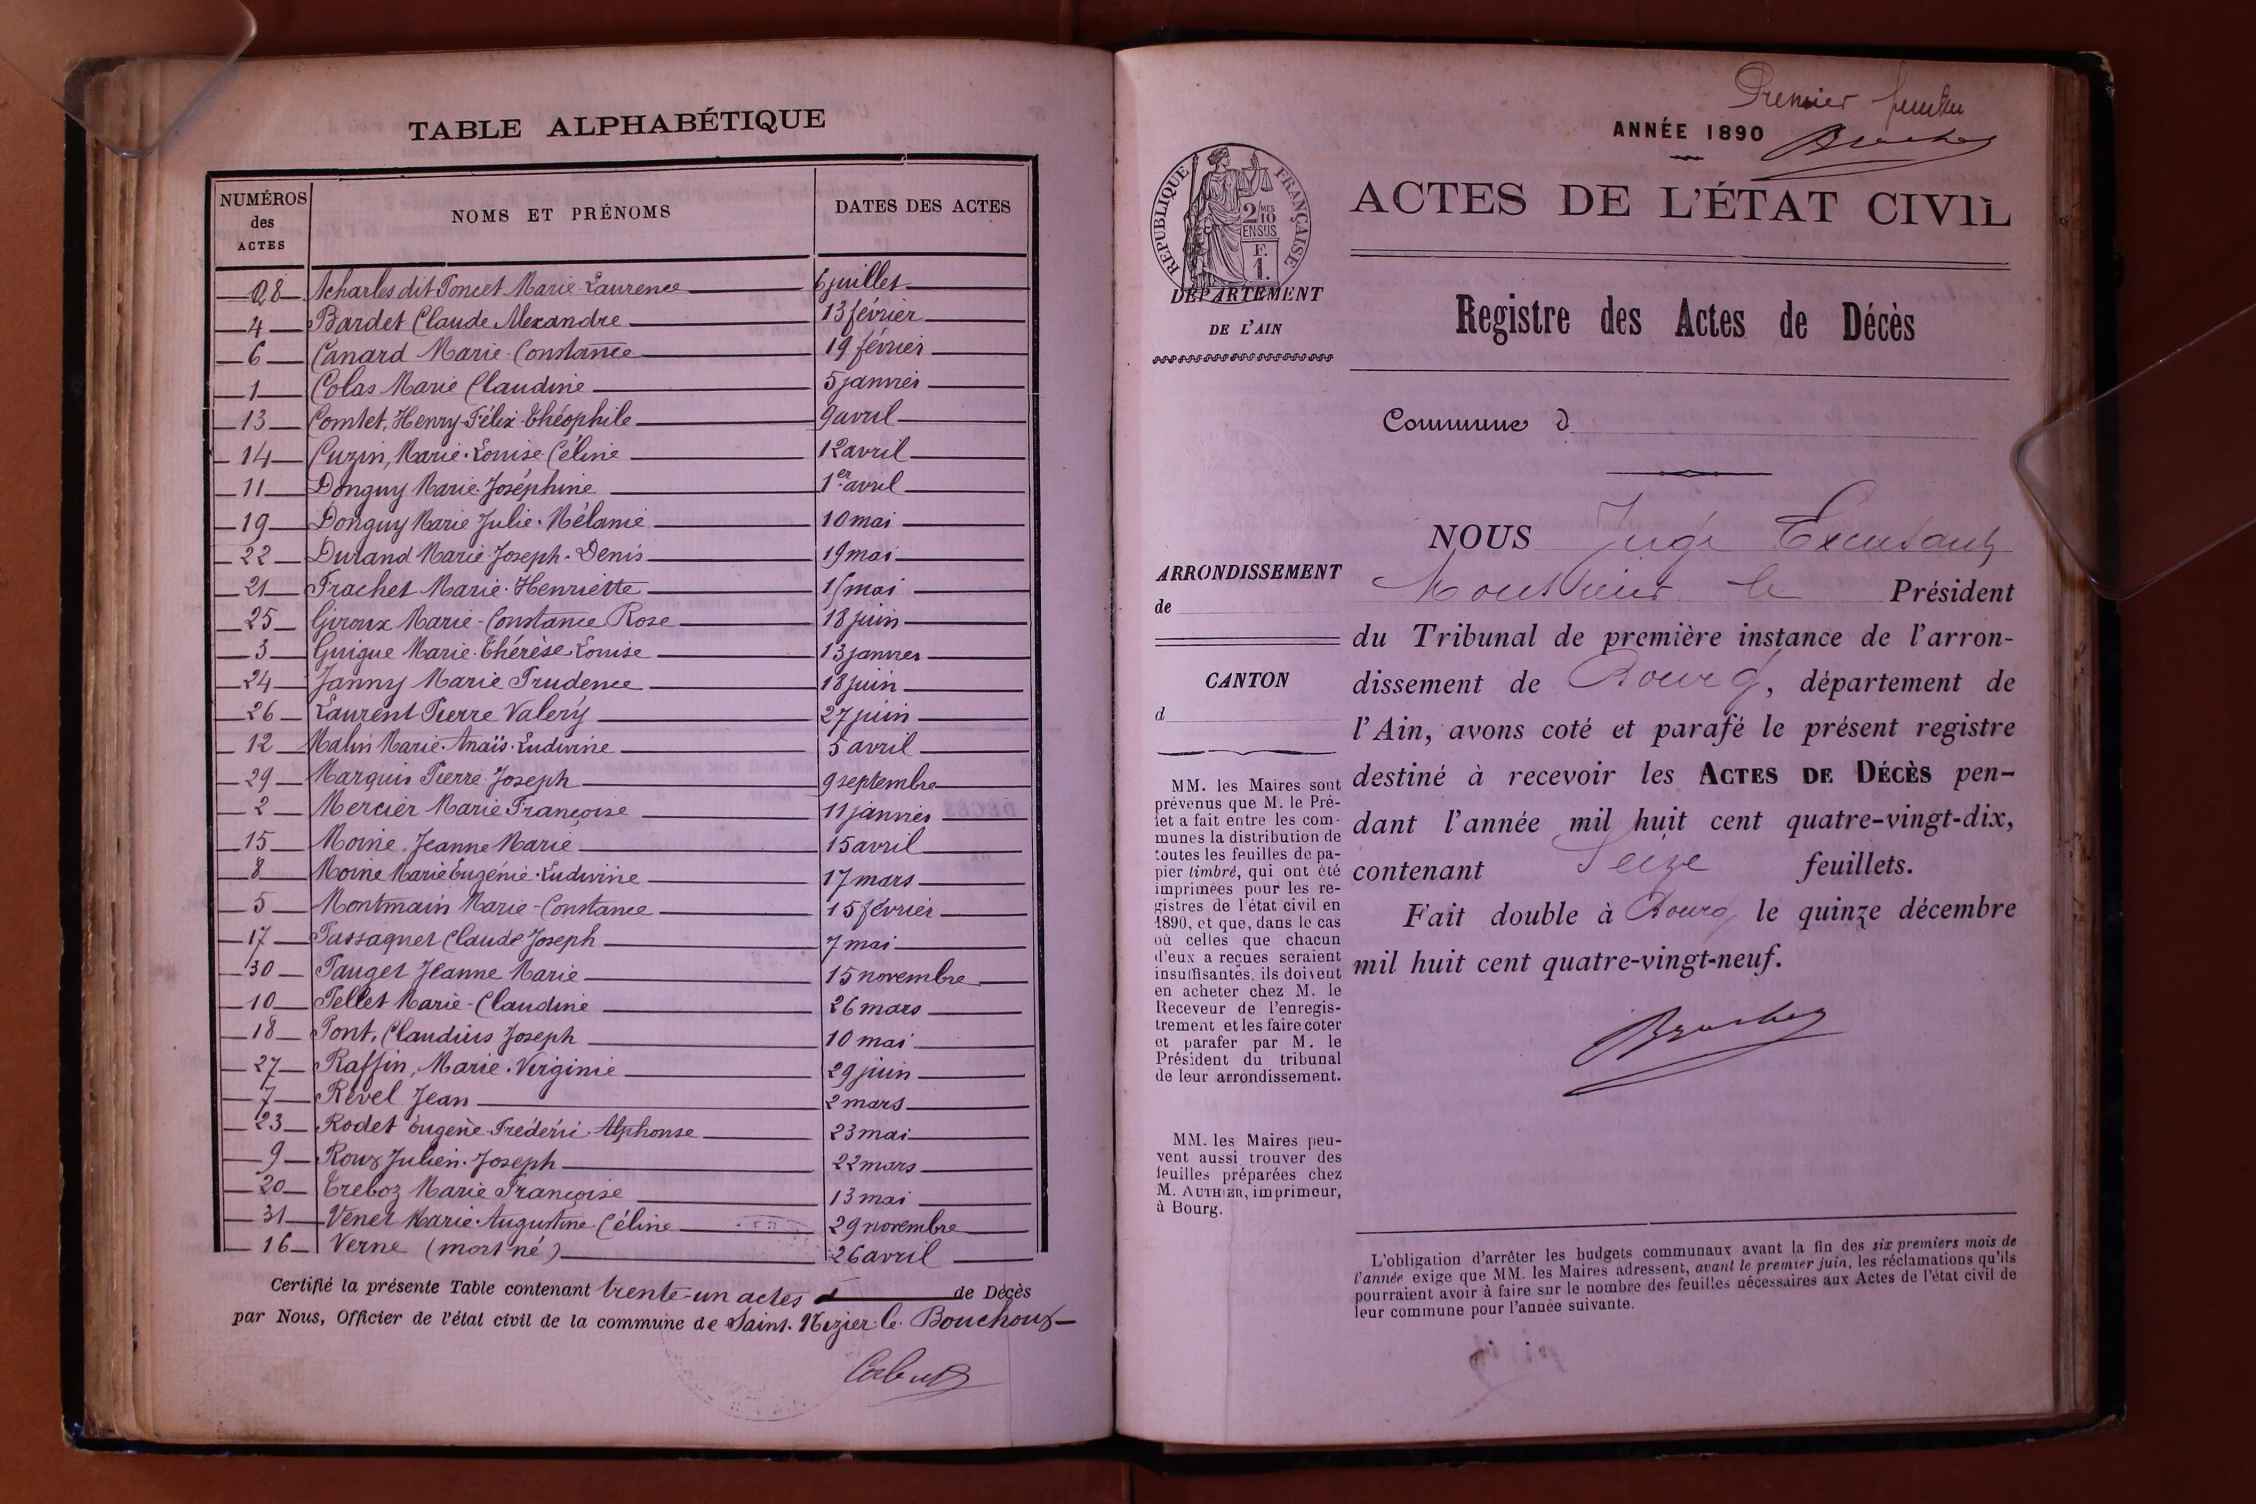 TABLE ALPHABÉTIQUE
NUMÉROS des ACTES NOMS ET PRÉNOMS DATES DES ACTES
28 Acharles dit Poncet Marie Laurence 6 juillet
4 Bardet Claude Alexandre 13 février
6 Canard Marie Constance 19 février
1 Colas Marie Claudine 5 janvier
13 Comtet, Henry Félix Théophile 9 avril
14 Cuzin, Marie Louise Céline 12 avril
11 Donguy Marie Joséphine 1er avril
19 Donguy Marie Julie Mélanie 10 mai
22 Durand Marie Joseph Denis 19 mai
21 Frachet Marie Henriette mai
25 Giroux Marie Constance Rose 18 juin
3 Guigue Marie Thérèse Louise 13 janvier
24 Janny Marie Prudence 18 juin
26 Laurent Pierre Valery 27 juin
12 Malin Marie Anaïs Ludivine 5 avril
29 Marquis Pierre Joseph 9 septembre
2 Mercier Marie Françoise 11 janvier
15 Moine Jeanne Marie 15 avril
8 Moine Marie Eugénie Ludivine 17 mars
5 Montmain Marie Constance 15 février
17 Passaquet Claude Joseph 7 mai
30 Pauget Jeanne Marie 15 novembre
10 Pellet Marie Claudine 26 mars
18 Pont, Claudius Joseph 10 mai
27 Raffin, Marie Virginie 29 juin
7 Revel Jean 2 mars
23 Rodet Eugène Frédéric Alphonse 23 mai
9 Roux Julien Joseph 22 mars
20 Treboz Marie Françoise 13 mai
31 Venet Marie Augustine Céline 29 novembre
16 Verne (mort né) 26 avril
Certifié la présente Table contenant trente-un actes de Décès
par Nous, Officier de l'état civil de la commune de Saint-Nizier-le-Bouchoux
Premier feuillet
ANNÉE 1890
RÉPUBLIQUE FRANÇAISE
2/10MES EN SUS
F. 1.
ACTES DE L'ÉTAT CIVIL
DÉPARTEMENT
DE L'AIN
Registre des Actes de Décès
Commune d
ARRONDISSEMENT
de
CANTON
d
MM. les Maires sont
prévenus que M. le Pré-
fet a fait entre les com-
munes la distribution de
toutes les feuilles de pa-
pier timbré, qui ont été
imprimées pour les re-
gistres de l'état civil en
1890, et que, dans le cas
où celles que chacun
d'eux a reçues seraient
insuffisantes, ils doivent
en acheter chez M. le
Receveur de l'enregis-
trement et les faire coter
et parafer par M. le
Président du tribunal
de leur arrondissement.
MM. les Maires peu-
vent aussi trouver des
feuilles préparées chez
M. AUTHIER, imprimeur,
à Bourg.
NOUS Juge
Monsieur le Président
du Tribunal de première instance de l'arron-
dissement de Bourg, département de
l'Ain, avons coté et parafé le présent registre
destiné à recevoir les ACTES DE DÉCÈS pen-
dant l'année mil huit cent quatre-vingt-dix,
contenant Seize feuillets.
Fait double à Bourg le quinze décembre
mil huit cent quatre-vingt-neuf.
L'obligation d'arrêter les budgets communaux avant la fin des six premiers mois de
l'année exige que MM. les Maires adressent, avant le premier juin, les réclamations qu'ils
pourraient avoir à faire sur le nombre des feuilles nécessaires aux Actes de l'état civil de
leur commune pour l'année suivante.